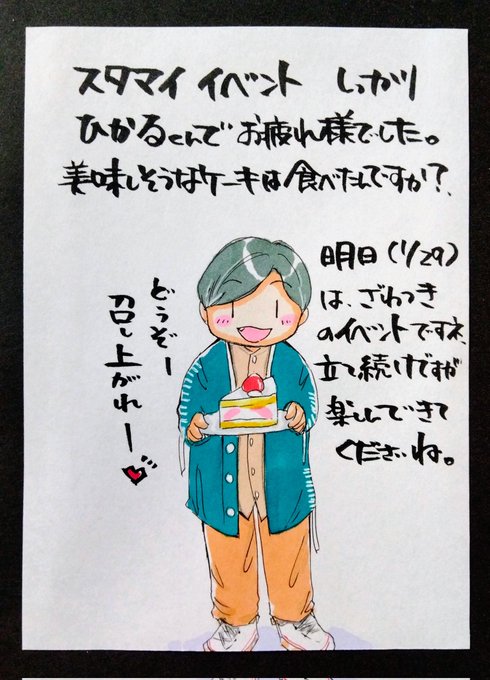 スタマイ イベント しっかり
ひかるくんで お疲れ様でした。
美味しそうなケーキは食べたんですか?
明日(1/29)
は、ざわつき
のイベントですネ、
立て続けですが
楽しんできて
くださいね。
どうぞー
召し上がれー♥